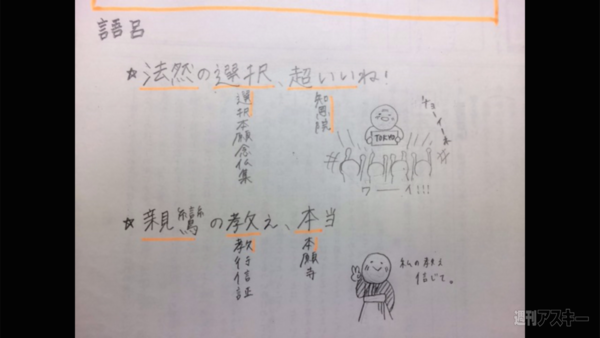 語呂
☆法然の選択、超いいね!
選択本願念仏集
知恩院
チョーイーネ
TOKYO
ワーイ!!!
☆親鸞の教え、本当
教行信証
本願寺
私の教え
信じて。
週刊アスキー